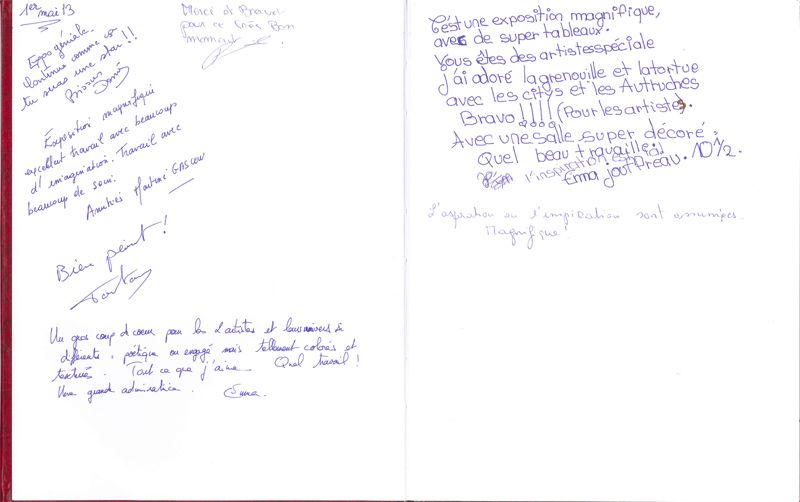 1er mai 13
Expo géniale
Continue comme ça
tu seras une star !!
Bisous
Merci et Bravo
pour ce très Bon
moment
Exposition magnifique
excellent travail avec beaucoup
d'imagination. Travail avec
beaucoup de soin.
Amitiés Martine GASCOU
Bien peint !
Un gros coup de coeur pour les 2 artistes et leurs univers si
différents, poétique ou engagé mais tellement colorés et
texturés. Tout ce que j'aime. Quel travail !
Une grande admiration.
C'est une exposition magnifique,
avec de super tableaux.
Vous êtes des artistes spéciale
j'ai adoré la grenouille et la tortue
avec les citys et les Autruches
Bravo !!!! (Pour les artistes).
Avec une salle super décoré.
Quel beau travaille !
l'inspiration est là
Emma Jouffreau. 10 1/2.
L'aspiration ou l'inspiration sont assumées.
Magnifique !